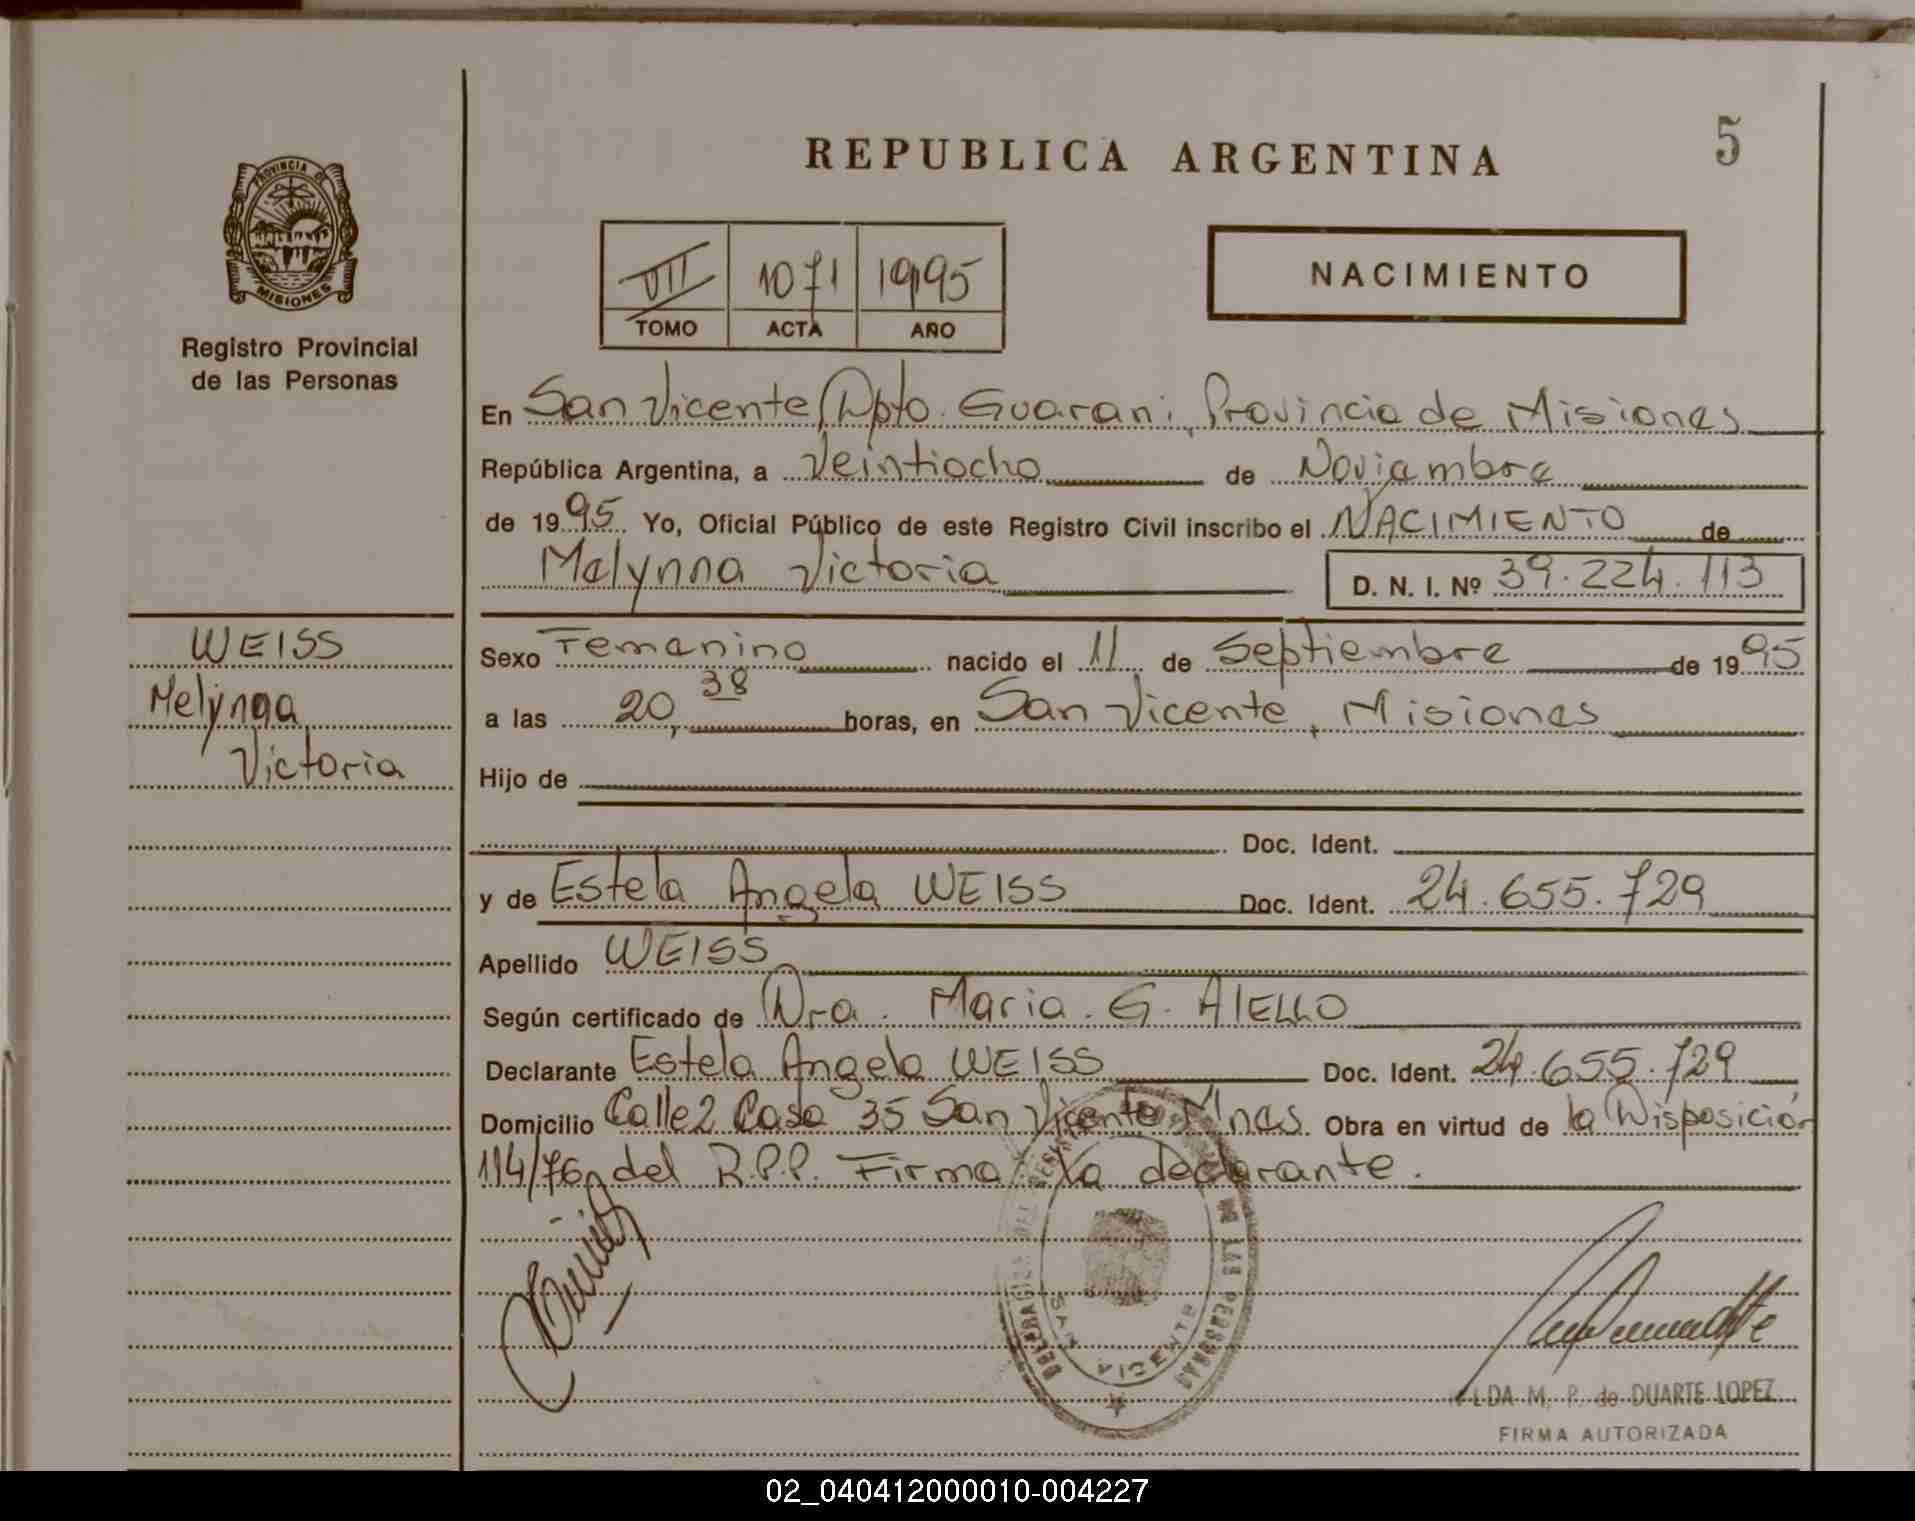 REPUBLICA ARGENTINA
5
PROVINCIA DE
MISIONES
Registro Provincial
de las Personas
VII 1071 1995
TOMO ACTA AÑO
NACIMIENTO
En San Vicente, Dpto. Guarani, Provincia de Misiones
República Argentina, a Veintiocho de Noviembre
de 1995 Yo, Oficial Público de este Registro Civil inscribo el NACIMIENTO de
Melynna Victoria D. N. I. Nº 39.224.113
WEISS
Melynna
Victoria
Sexo Femenino nacido el 11 de Septiembre de 1995
a las 20,38 horas, en San Vicente, Misiones
Hijo de
Doc. Ident.
y de Estela Angela WEISS Doc. Ident. 24.655.729
Apellido WEISS
Según certificado de Dra. Maria. G. AIELLO
Declarante Estela Angela WEISS Doc. Ident. 24.655.729
Domicilio Calle 2 Casa 35 San Vicente Mnes Obra en virtud de la Disposición
114/76 del R.P.P. Firma la declarante.
DE LAS PERSONAS
SAN VICENTE
M. P. de DUARTE LOPEZ
FIRMA AUTORIZADA
02_040412000010-004227